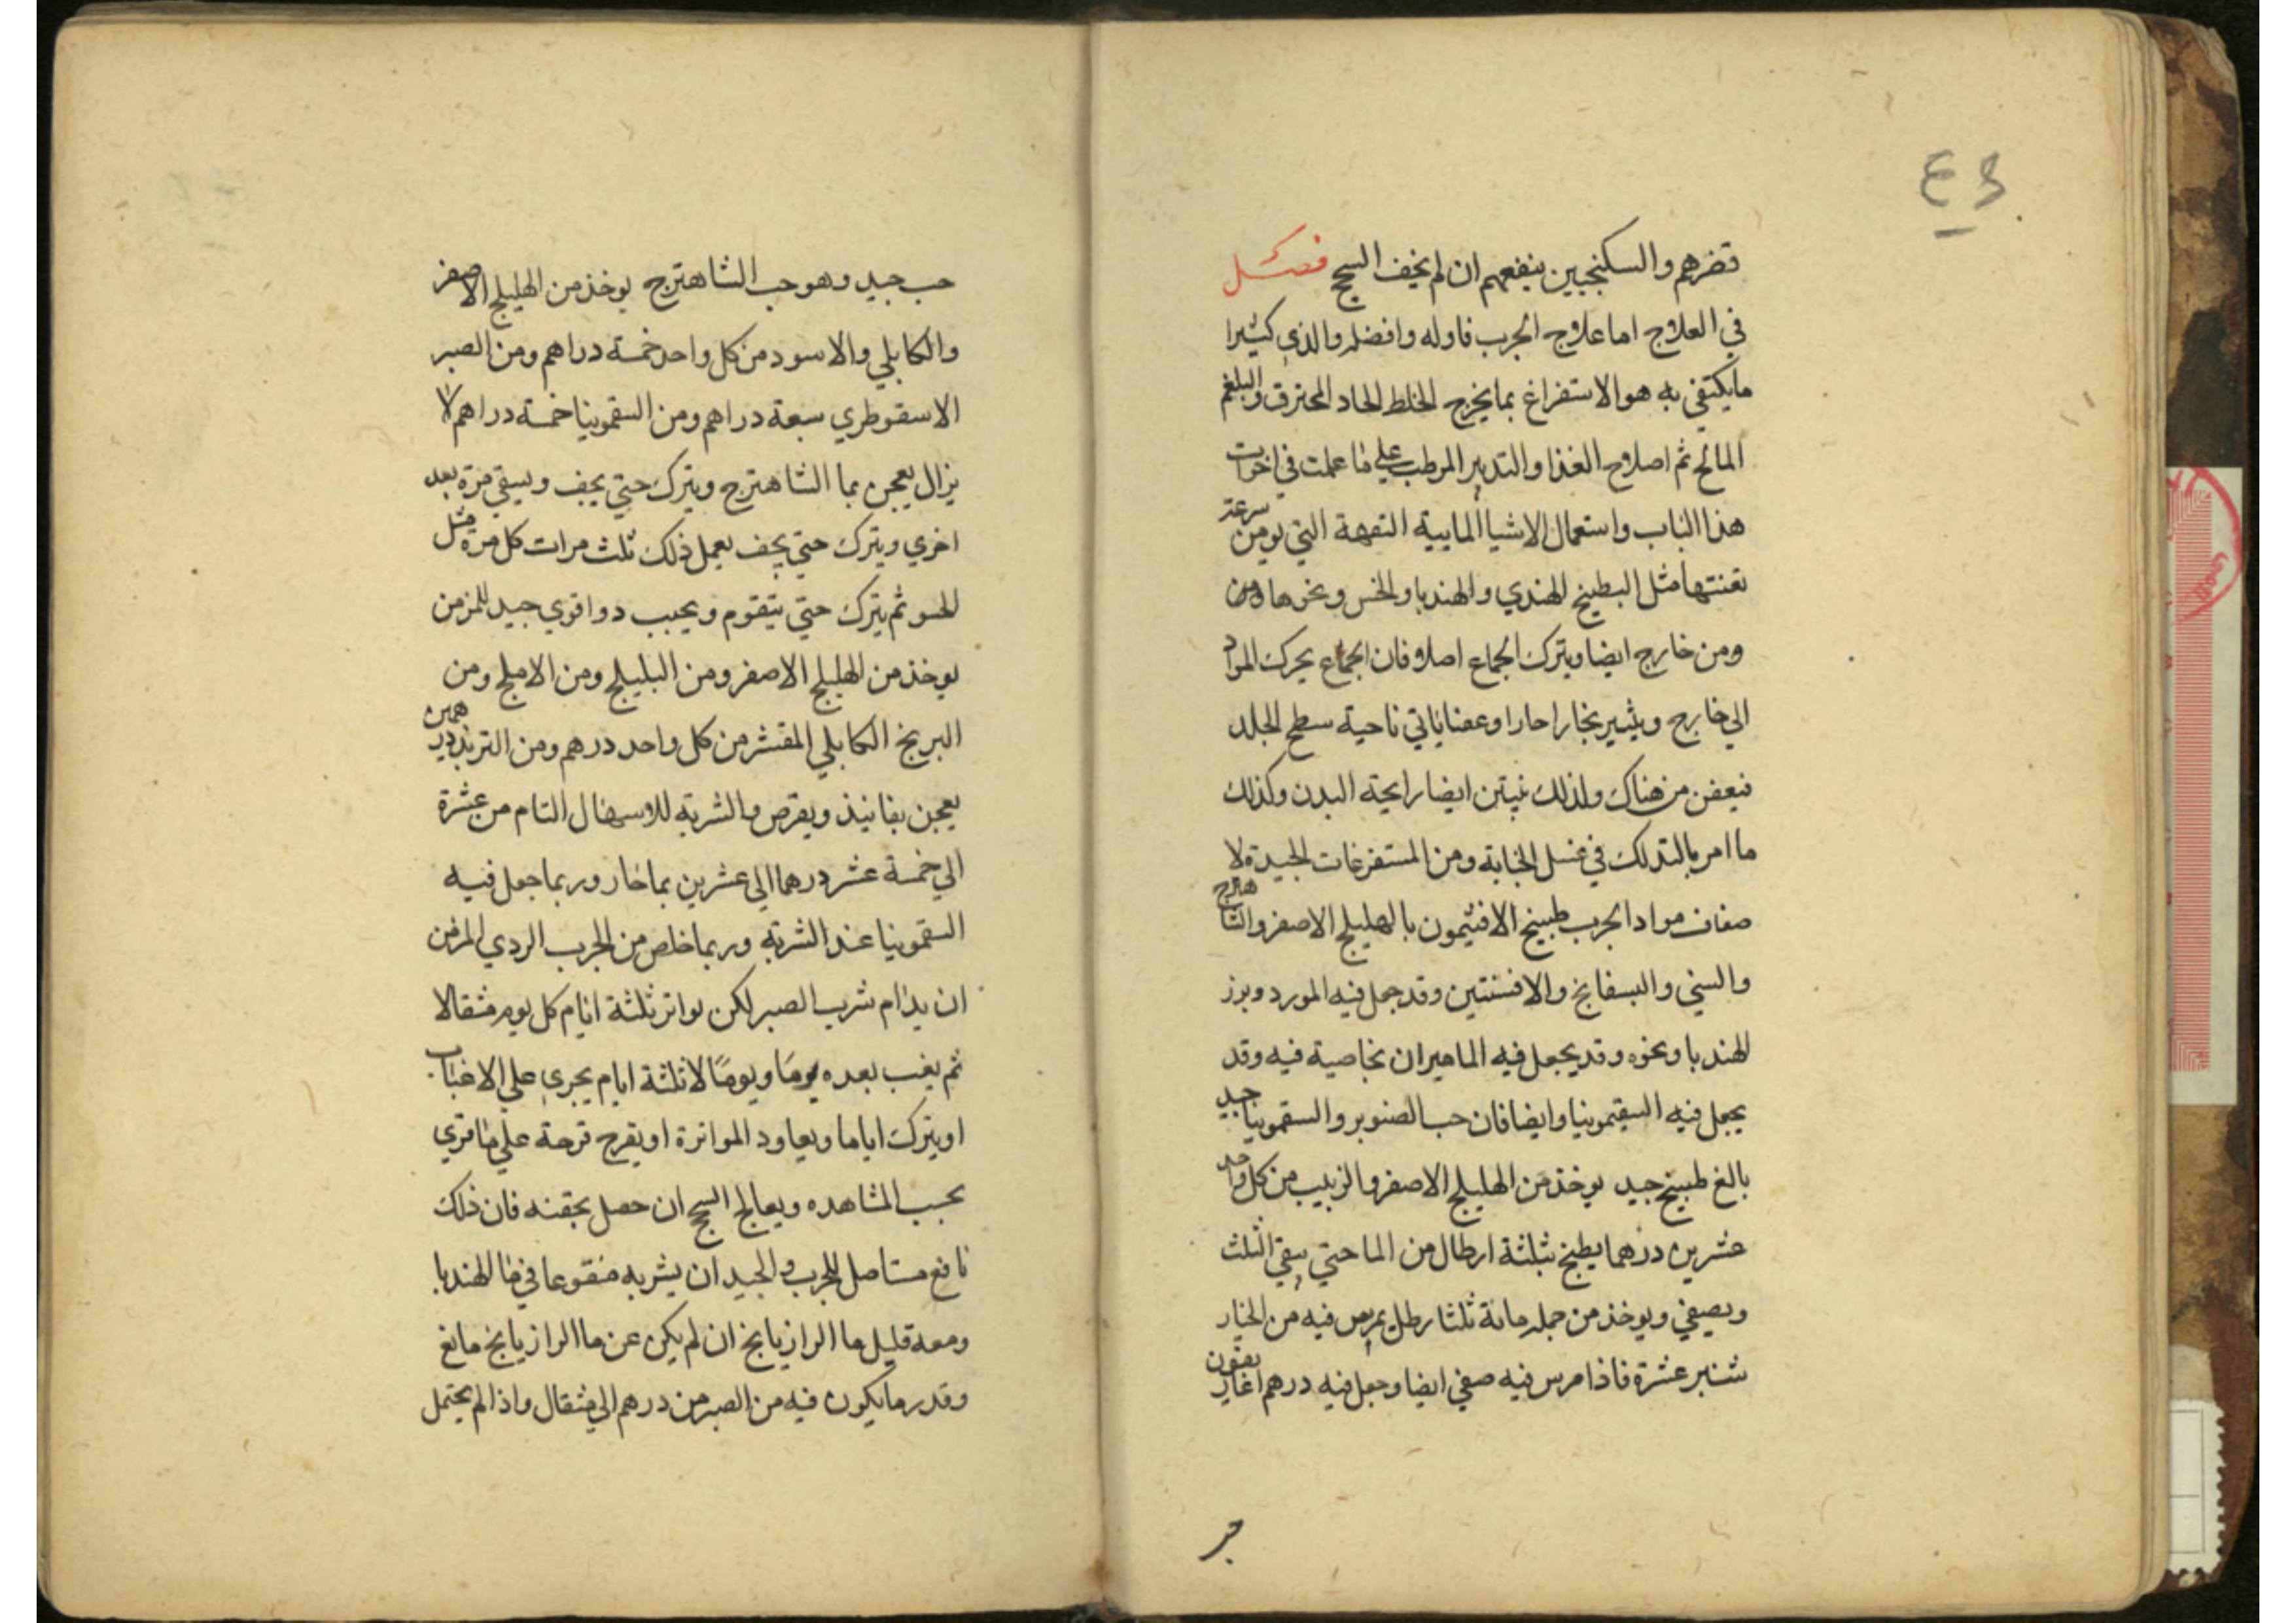 تضرهم والسكنجبين ينفعهم ان لم يخف السحج فصل
في العلاج اما علاج الجرب فاوله وافضله والذي كثيرا
ما يكتفي به هو الاستفراغ بما يخرج الخلط الحاد المحترق والبلغم
المالح ثم اصلاح الغذا والتدبير المرطب علي ما علمت في اخوات
هذا الباب واستعمال الاشيا المايية التفهة التي يومن سرعة
تعفنها مثل البطيخ الهندي والهندبا والخس ونحوها من
ومن خارج ايضا ويترك الجماع اصلا فان الجماع يحرك المواد
الي خارج ويثير بخارا حارا وعفنا ياتي ناحية سطح الجلد
فيعفن من هناك ولذلك ينتن ايضا رايحة البدن وكذلك
ما امر بالتدلك في غسل الجنابة ومن المستفرغات الجيدة لا
صفاف مواد الجرب طبيخ الافتيمون بالهليلج الاصفر والشاهترج
والسني والبسفايج والافسنتين وقد جعل فيه المورد وبزر
الهندبا ونحوه وقد يجعل فيه الماميران بخاصية فيه وقد
يجعل فيه السقيمونيا وايضا فان حب الصنوبر والسقمونيا جيد
بالغ طبيخ جيد يوخذ من الهليلج الاصفر والزبيب من كل واحد
عشرين درهما يطبخ بثلثة ارطال من الما حتي يبقي الثلث
ويصفي ويوخذ من جملة مائة ثلثا رطل يمرس فيه من الخيار
شنبر عشرة فاذا مرس فيه صفي ايضا وجعل فيه درهم اغاريقون
حب جيد وهو حب الشاهترج يوخذ من الهليلج الاصفر
والكابلي والاسود من كل واحد خمسة دراهم ومن الصبر
الاسقوطري سبعة دراهم ومن السقمونيا خمسة دراهم لا
يزال يعجن بما الشاهترج ويترك حتي يجف ويسقي مرة بعد
اخري ويترك حتي يجف يعمل ذلك ثلث مرات كل مرة مثل
الحسو ثم يترك حتي يتقوم ويحبب دوا قوي جيد للمزمن
يوخذ من الهليلج الاصفر ومن البليلج ومن الاملج ومن
البرنج الكابلي المقشر من كل واحد درهم ومن التربذ درهمين
يعجن بفانيذ ويقرص والشربة للاسهال التام من عشرة
الي خمسة عشر درهما الي عشرين بما حار وربما جعل فيه
السقمونيا عند الشربة وربما خلص من الجرب الردي المزمن
ان يدام شرب الصبر لكن يواتر ثلثة ايام كل يوم مثقالا
ثم يغب بعده يوما ويوما لا ثلثة ايام يجري علي الاغباب
او يترك اياما ويعاود المواترة او يقرح قرحة علي ما تري
بحسب المشاهده ويعالج السحج ان حصل بحقنه فان ذلك
نافع مستاصل للجرب والجيد ان يشربه منقوعا في ما الهندبا
ومعه قليل ما الرازيانج ان لم يكن عن ما الرازيانج مانع
وقدر ما يكون فيه من الصبر من درهم الي مثقال واذا لم يحتمل